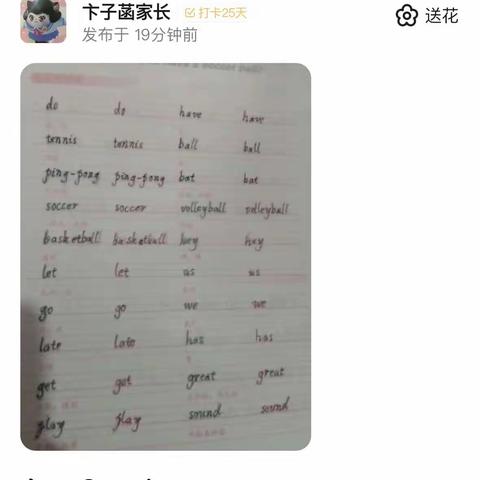 卞子菡家长 打卡25天 送花
发布于 19分钟前
do do have have
tennis tennis ball ball
ping-pong ping-pong bat bat
soccer soccer volleyball volleyball
basketball basketball hey hey
let let us us
go go we we
late late has has
get get great great
play play sound sound